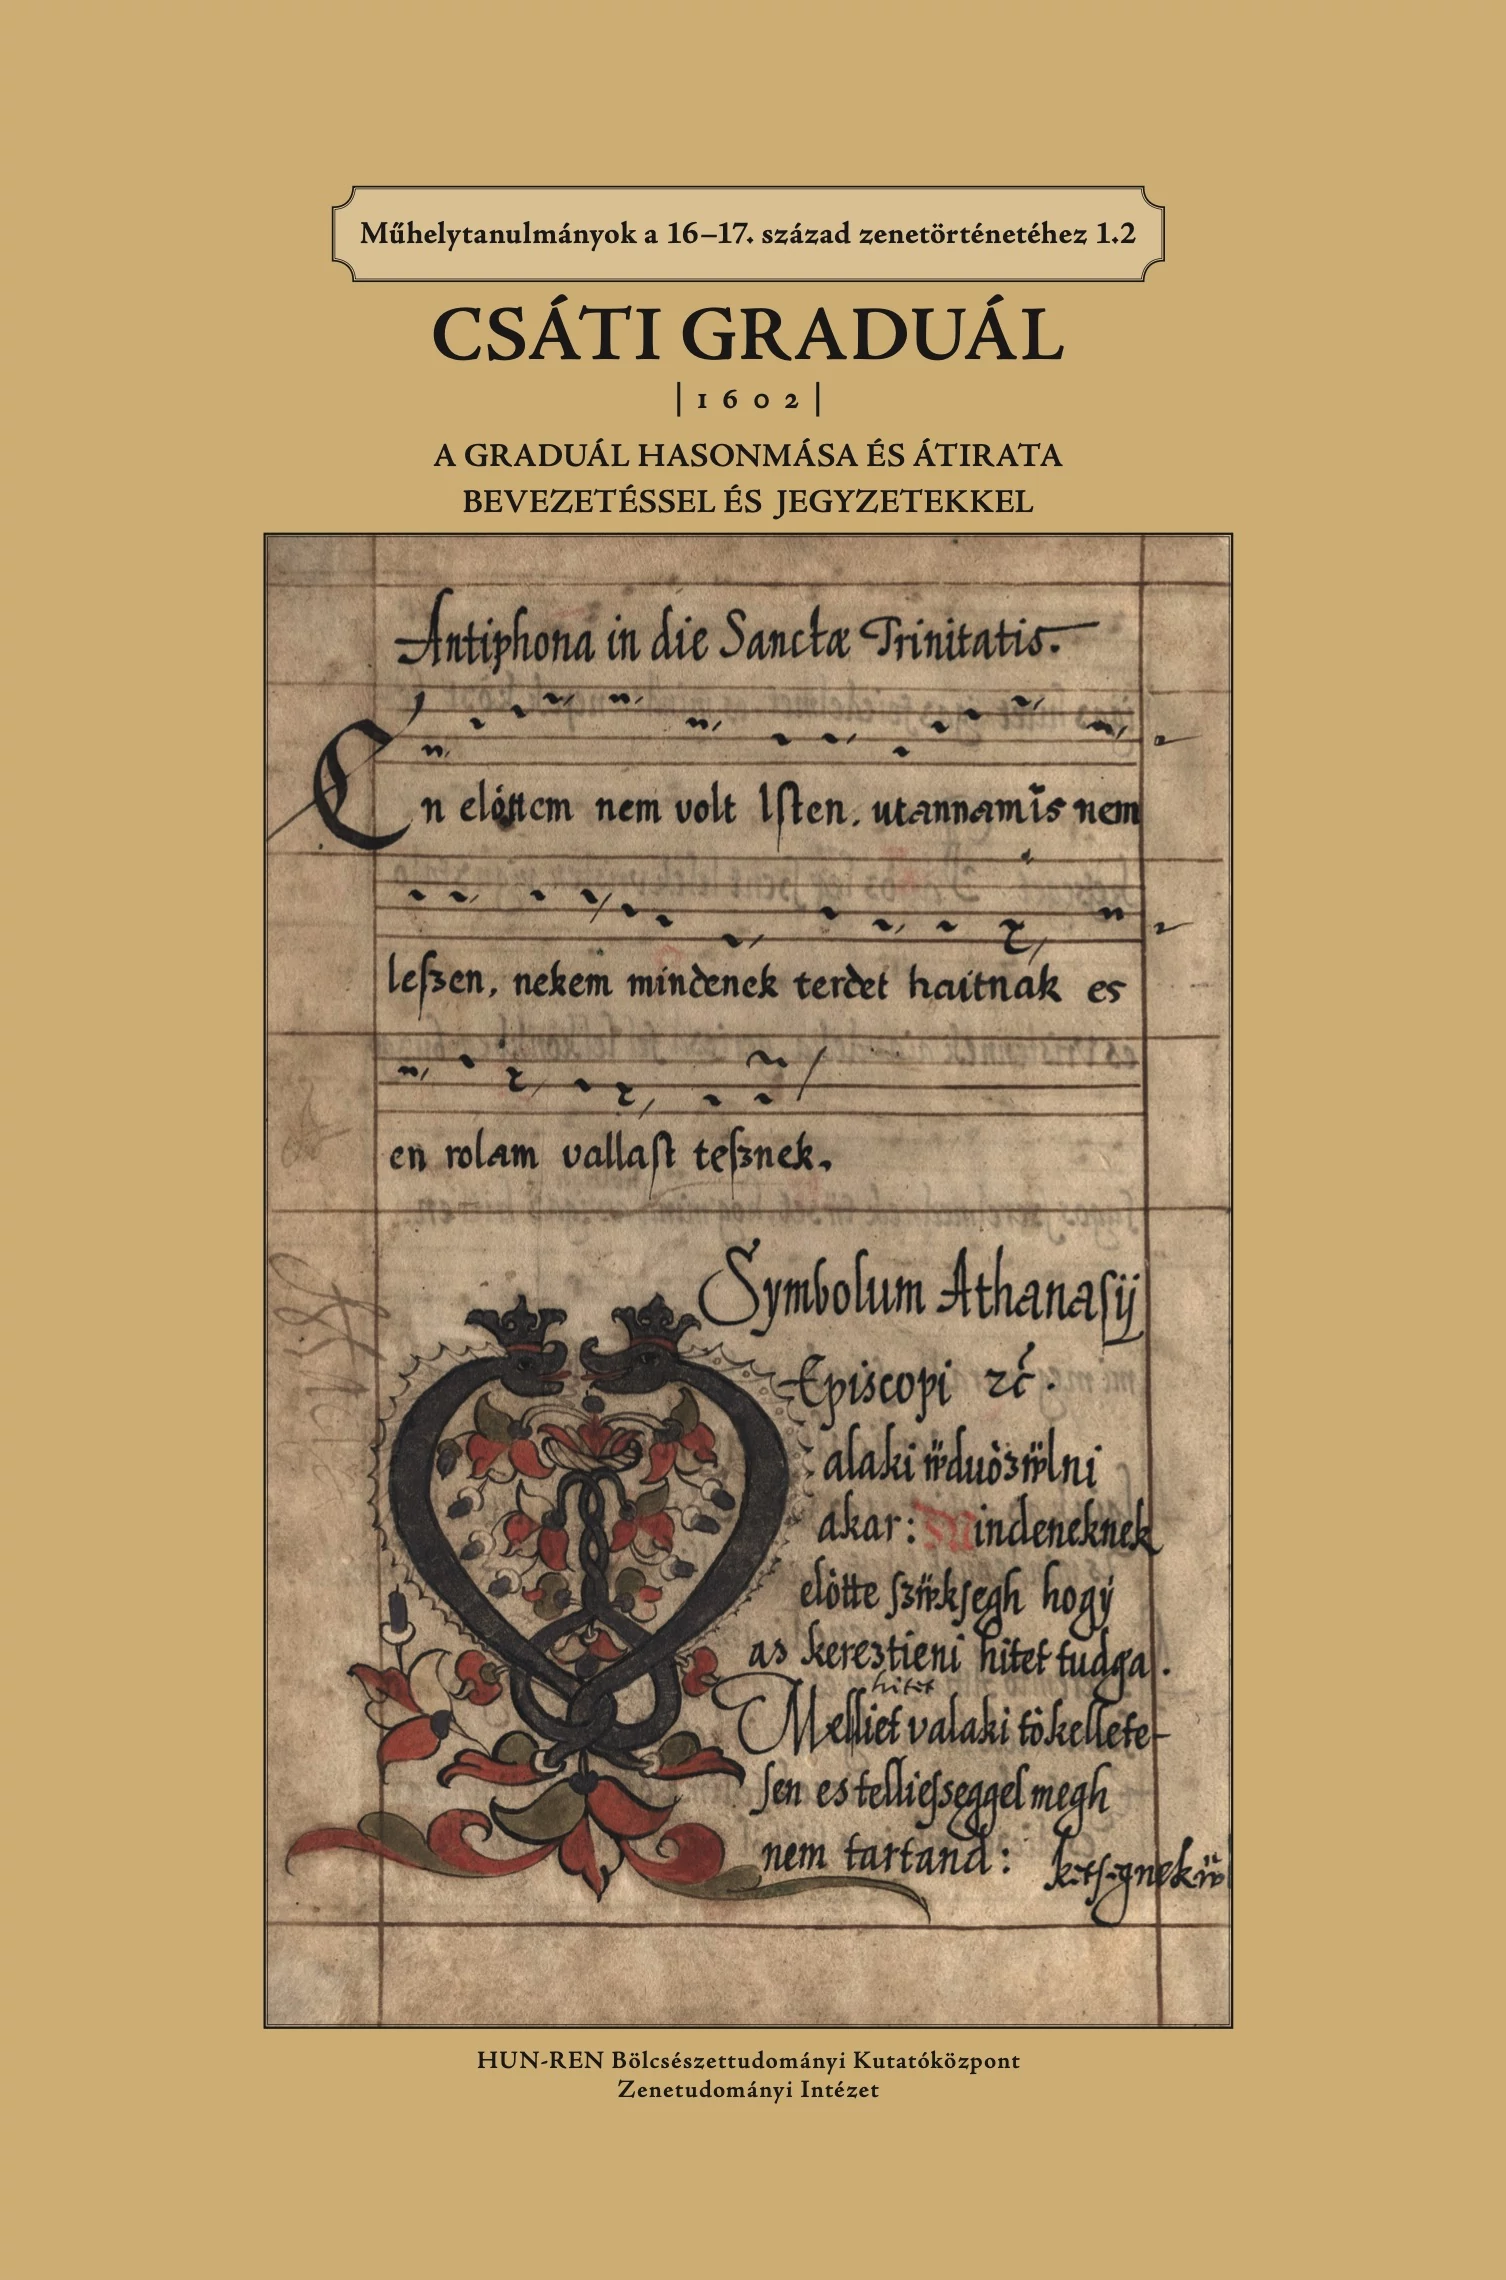 Műhelytanulmányok a 16–17. század zenetörténetéhez 1.2
CSÁTI GRADUÁL
|1602|
A GRADUÁL HASONMÁSA ÉS ÁTIRATA
BEVEZETÉSSEL ÉS JEGYZETEKKEL
Antiphona in die Sanctæ Trinitatis.
En elöttem nem volt Iſten, utannam is nem
leſzen, nekem mindenek terdet haitnak es
en rolam vallaſt teſznek.
Symbolum Athanaſij
Episcopi
Valaki
akar: Mindeneknek
elötte hogÿ
as keresztieni hitet tudga.
hitet
Melliet valaki tökellete-
ſen es telliesſeggel megh
nem tartand:
HUN-REN Bölcsészettudományi Kutatóközpont
Zenetudományi Intézet